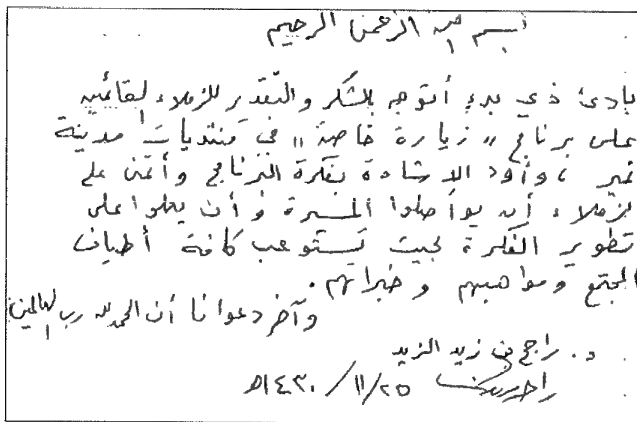 بسم الله الرحمن الرحيم
بادئ ذي بدء أتوجه بالشكر والتقدير للزملاء القائمين
على برنامج " زيارة خاصة " في منتديات مدينة
تمير ، وأود الاشادة بفكرة البرنامج وأتمنى على
الزملاء أن يواصلوا المسيرة وأن يعملوا على
تطوير الفكرة بحيث تستوعب كافة أطياف
المجتمع ومواهبهم وخبراتهم .
وآخر دعوانا أن الحمد لله رب العالمين
د. راجح بن زيد الزيد
١٤٣٠/١١/٢٥هـ